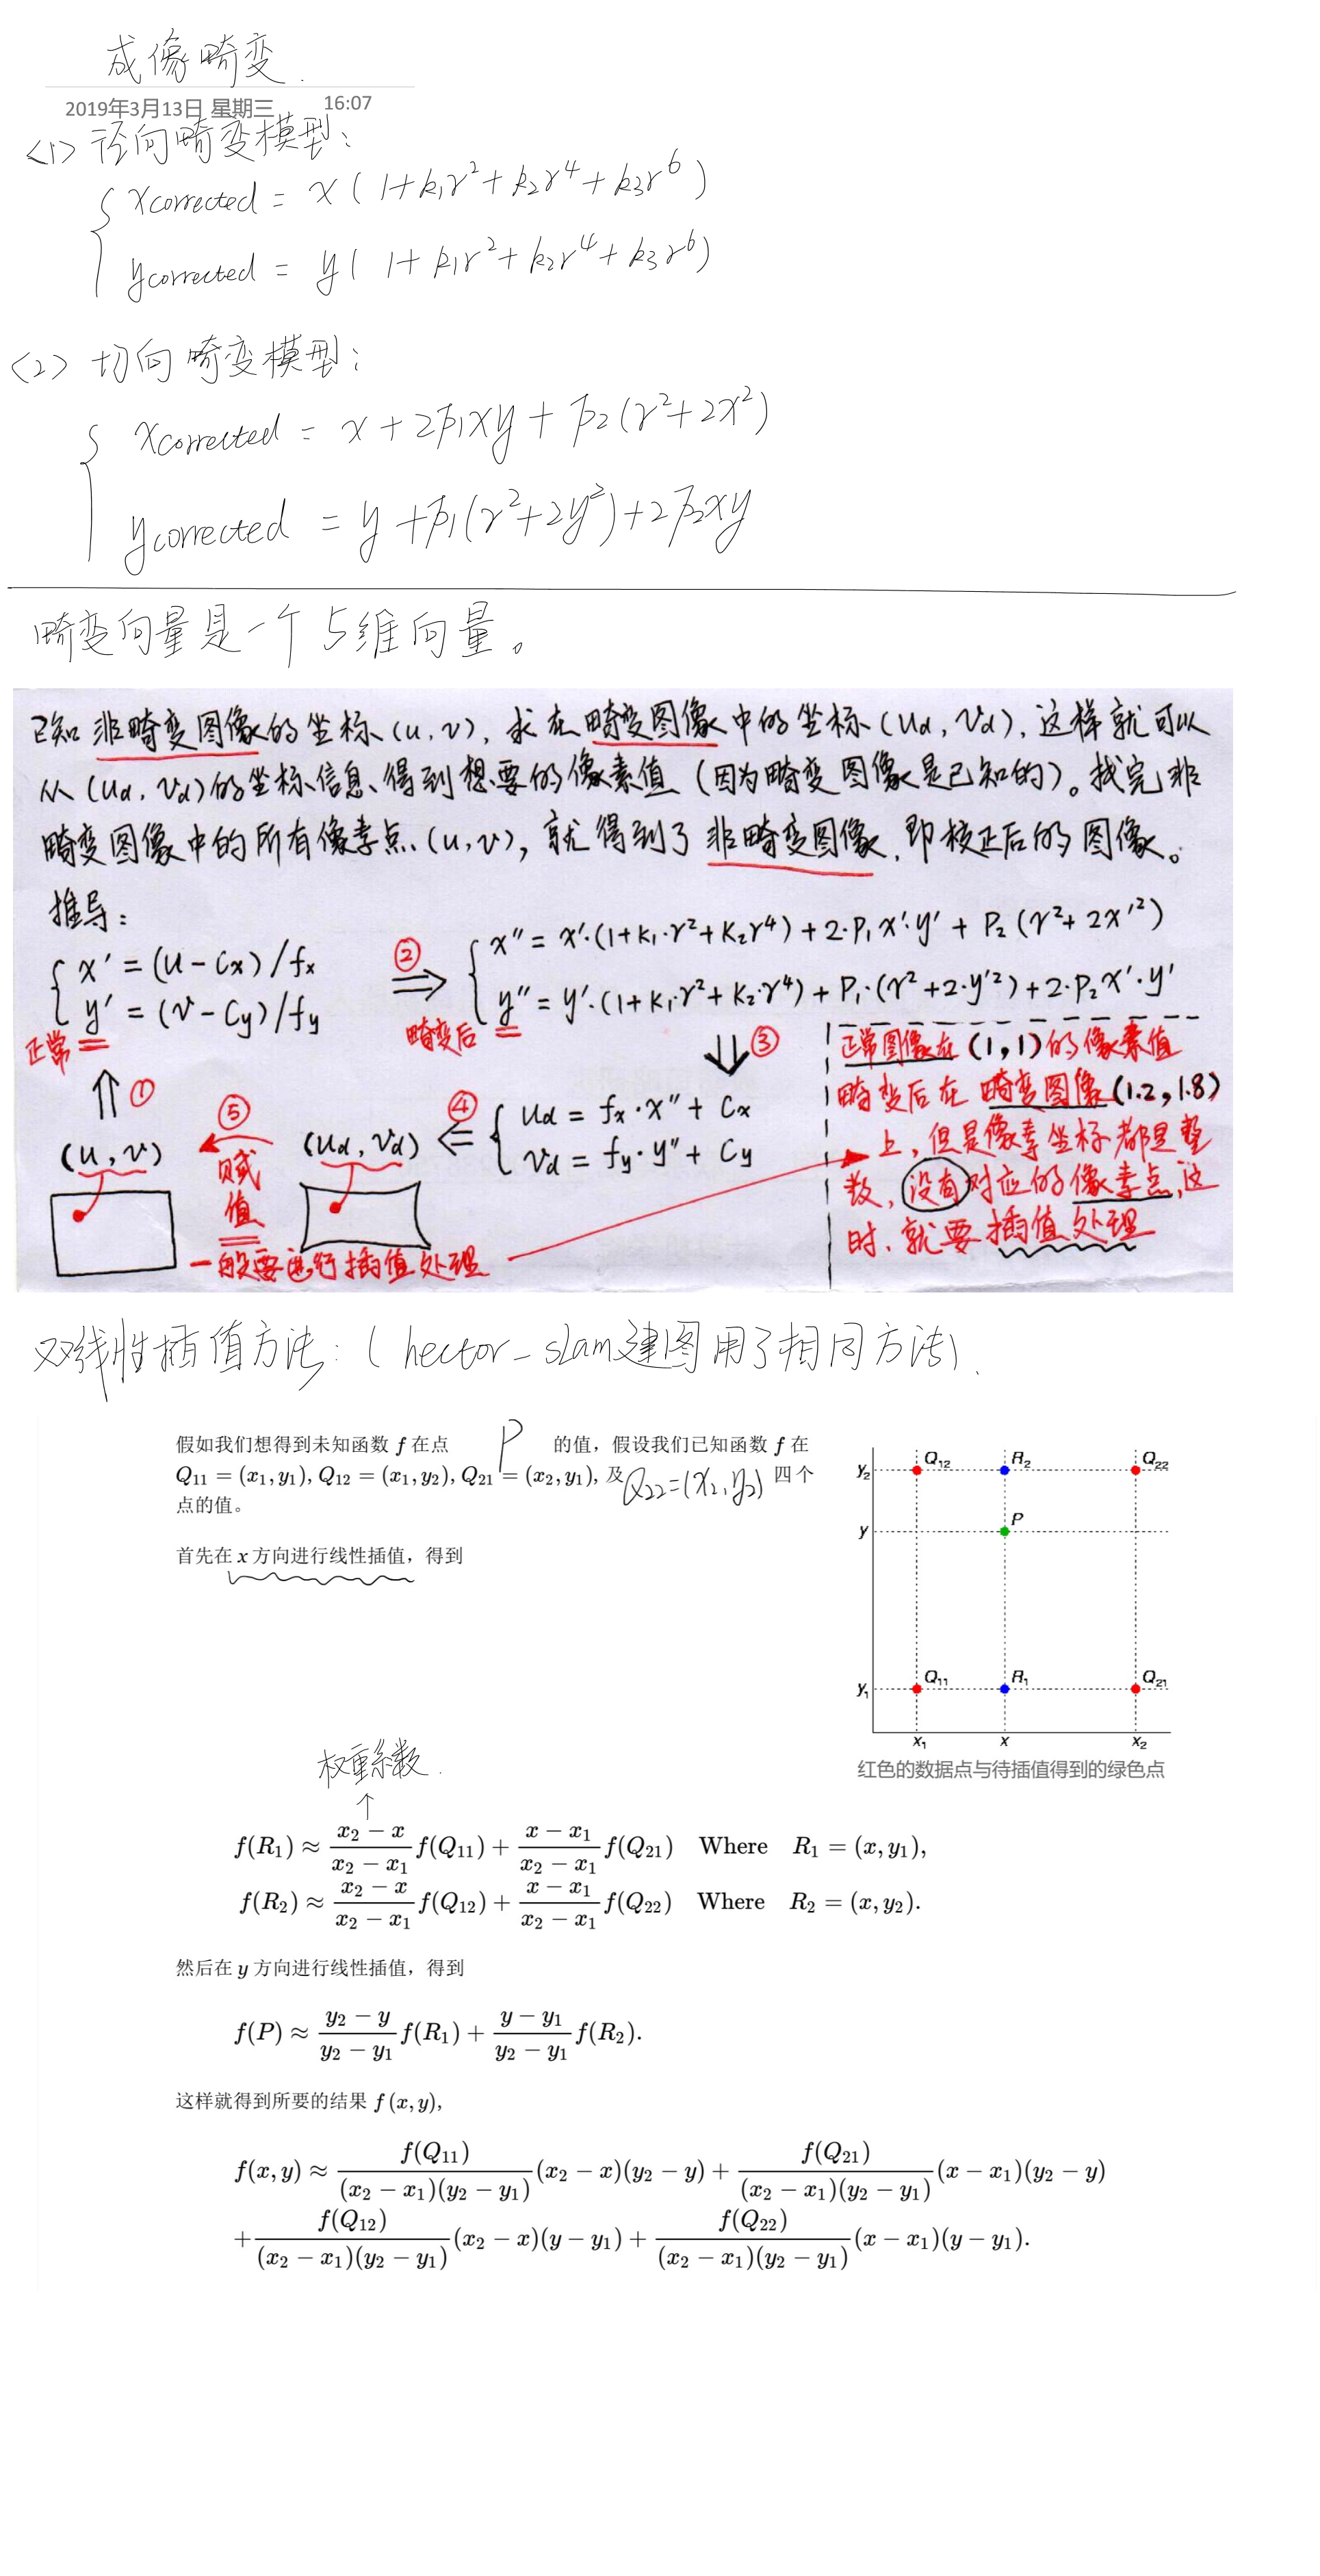 成像畸变.
2019年3月13日 星期三 16:07
<1> 径向畸变模型:
xcorrected = x ( 1+k₁r²+k₂r⁴+k₃r⁶ )
ycorrected = y ( 1+k₁r²+k₂r⁴+k₃r⁶ )
<2> 切向畸变模型:
xcorrected = x + 2p₁xy + p₂(r²+2x²)
ycorrected = y + p₁(r²+2y²)+2p₂xy
畸变向量是一个5维向量。
已知非畸变图像的坐标(u,v),求在畸变图像中的坐标(ud,vd),这样就可以
从(ud,vd)的坐标信息、得到想要的像素值(因为畸变图像是已知的)。找完非
畸变图像中的所有像素点(u,v),就得到了非畸变图像,即校正后的图像。
推导:
x' = (u-Cx)/fx
y' = (v-Cy)/fy
正常
②
x'' = x'·(1+k₁·r²+k₂r⁴)+2·P₁x'·y' + P₂(r²+2x'²)
y'' = y'·(1+k₁·r²+k₂·r⁴)+P₁·(r²+2·y'²)+2·P₂x'·y'
畸变后
③
ud = fx·x''+Cx
vd = fy·y''+Cy
④
(ud,vd)
⑤
赋值
①
(u,v)
一般要进行插值处理
正常图像在(1,1)的像素值
畸变后在畸变图像(1.2,1.8)
上,但是像素坐标都是整
数,没有对应的像素点,这
时,就要插值处理
双线性插值方法:( hector_slam建图用了相同方法).
假如我们想得到未知函数 f 在点 P 的值,假设我们已知函数 f 在
Q₁₁ = (x₁,y₁), Q₁₂ = (x₁,y₂), Q₂₁ = (x₂,y₁), 及 Q22=(x₂,y₂) 四个
点的值。
首先在 x 方向进行线性插值,得到
y₂ Q₁₂ R₂ Q₂₂
y P
y₁ Q₁₁ R₁ Q₂₁
x₁ x x₂
红色的数据点与待插值得到的绿色点
权重系数.
f(R₁) ≈ (x₂ − x)/(x₂ − x₁) f(Q₁₁) + (x − x₁)/(x₂ − x₁) f(Q₂₁) Where R₁ = (x,y₁),
f(R₂) ≈ (x₂ − x)/(x₂ − x₁) f(Q₁₂) + (x − x₁)/(x₂ − x₁) f(Q₂₂) Where R₂ = (x,y₂).
然后在 y 方向进行线性插值,得到
f(P) ≈ (y₂ − y)/(y₂ − y₁) f(R₁) + (y − y₁)/(y₂ − y₁) f(R₂).
这样就得到所要的结果 f (x,y),
f(x,y) ≈ f(Q₁₁)/((x₂ − x₁)(y₂ − y₁)) (x₂ − x)(y₂ − y) + f(Q₂₁)/((x₂ − x₁)(y₂ − y₁)) (x − x₁)(y₂ − y)
+ f(Q₁₂)/((x₂ − x₁)(y₂ − y₁)) (x₂ − x)(y − y₁) + f(Q₂₂)/((x₂ − x₁)(y₂ − y₁)) (x − x₁)(y − y₁).